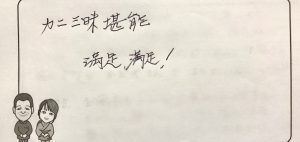 カニ三昧堪能
満足,満足!